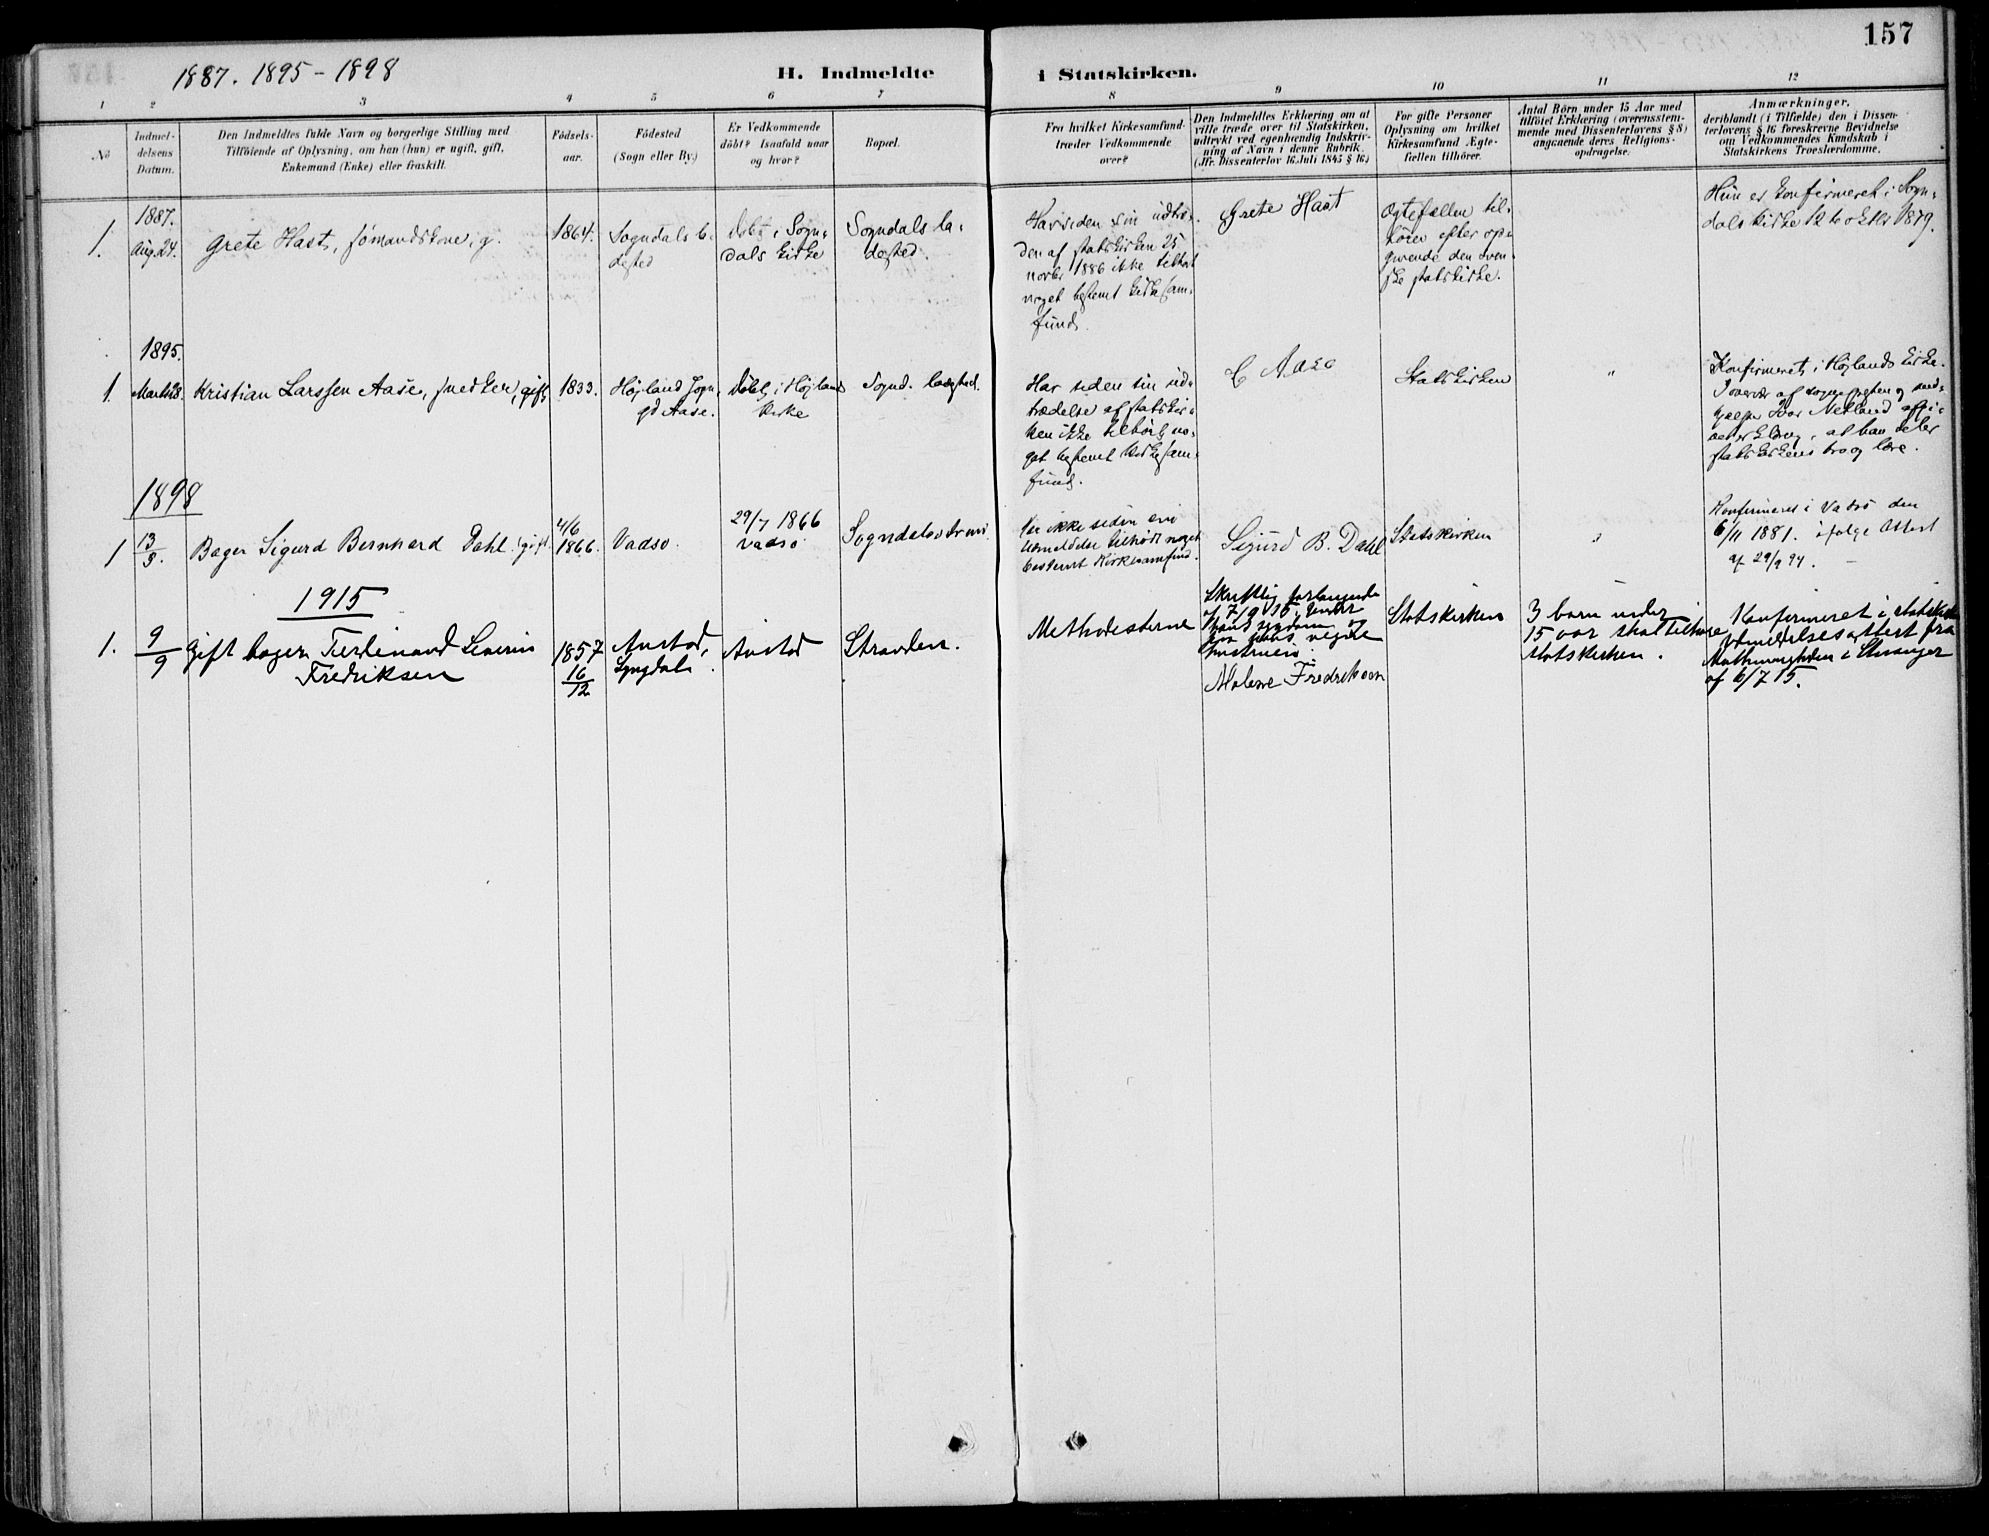 157
1887. 1895 - 1898
H. Indmeldte i Statskirken.
1 2 3 4 5 6 7 8 9 10 11 12
No
Indmel-
delsens
Datum.
Den Indmeldtes fulde Navn og borgerlige Stilling med
Tilföiende af Oplysning, om han (hun) er ugift, gift,
Enkemand (Enke) eller fraskilt.
Födsels-
aar.
Födested
(Sogn eller By.)
Er Vedkommende
döbt? Isaafald naar
og hvor?
Bopæl.
Fra hvilket Kirkesamfund
træder Vedkommende
over?
Den Indmeldtes Erklæring om at
ville træde over til Statskirken,
udtrykt ved egenhændig Indskriv-
ning af Navn i denne Rubrik.
(Jfr. Dissenterlov 16 Juli 1845 § 16.)
For gifte Personer
Oplysning om hvilket
Kirkesamfund Ægte-
fællen tilhörer.
Antal Börn under 15 Aar med
tilföiet Erklæring (overensstem-
mende med Dissenterlovens § 8)
angaaende deres Religions-
opdragelse.
Anmærkninger,
deriblandt (i Tilfælde) den i Dissen-
terlovens § 16 foreskrevne Bevidnelse
om Vedkommendes Kundskab i
Statskirkens Troeslærdomme.
1887.
1. Aug. 24.
Grete Hast, sømandskone, g.
1864.
Sogndals la-
dested
döbt i Sogn-
dals kirke
Sogndals la-
dested.
Har siden sin udtræ-
den af statskirken 25
novbr 1886 ikke tilhørt
noget bestemt kirkesam-
fund.
Grete Hast
Ægtefællen til-
hører efter opgi-
vende den sven-
ske statskirke.
Hun er konfirmeret i Sogn-
dals kirke 12 oktbr 1879.
1895.
1. Marts 28.
Kristian Larssen Aase, snedker, gift
1833.
Höjland sogn
gd Aase.
Döbt i Höjlands
kirke
Sognd. ladested.
Har siden sin ud-
trædelse af statskir-
ken ikke tilhørt no-
get bestemt kirkesam-
fund.
C Aase
Statskirken
"
Konfirmeret i Höjlands kirke.
I overvær af sognepresten og med-
hjælper Ivar Netland
erklæring, at han deler
statskirkens tro og lære.
1898
1 13/3.
Bager Sigurd Bernhard Dahl. (gift.
4/6
1866.
Vadsø.
29/7 1866
Vadsø
Sogndalsstrand.
Har ikke siden sin
Udmeldelse tilhört noget
bestemt Kirkesamfund.
Sigurd B. Dahl
Statskirken
"
Konfirmeret i Vadsö den
6/11 1881. ifølge Attest
af 29/9 94.
1915
1. 9/9
Gift bager Ferdinand Severin
Fredriksen
1857
16/12
Austad,
Lyngdal.
Austad
Stranden.
Methodisterne
Skriftlig forlangende
af 7/9 15, under
hans sygdom og
paa hans vegne
hustruen:
Malene Fredriksen
Statskirken
3 barn under
15 aar skal tilhøre
statskirken.
Konfirmeret i statskirken
Udmeldelsesattest fra
Meth.menigheden i Stavanger
af 6/7 15.